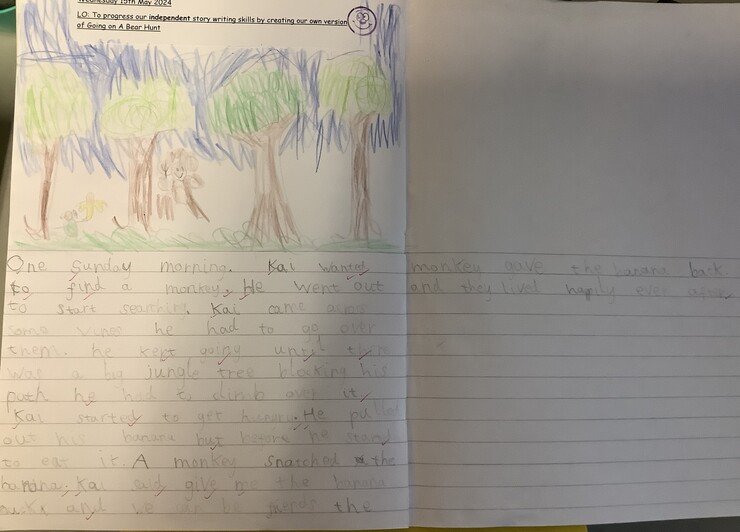 Wednesday 15th May 2024
LO: To progress our independent story writing skills by creating our own version
of Going on A Bear Hunt
One Sunday morning. Kai wanted
to find a monkey, He went out
to start searching. Kai came across
some vines he had to go over
them. he kept going until there
was a big jungle tree blocking his
path he had to climb over it
Kai started to get hungry. He pulled
out his banana but before he
to eat it. A monkey snatched the
banana. Kai said give me the banana
and we can be the
monkey gave the banana back
and they lived happily ever after